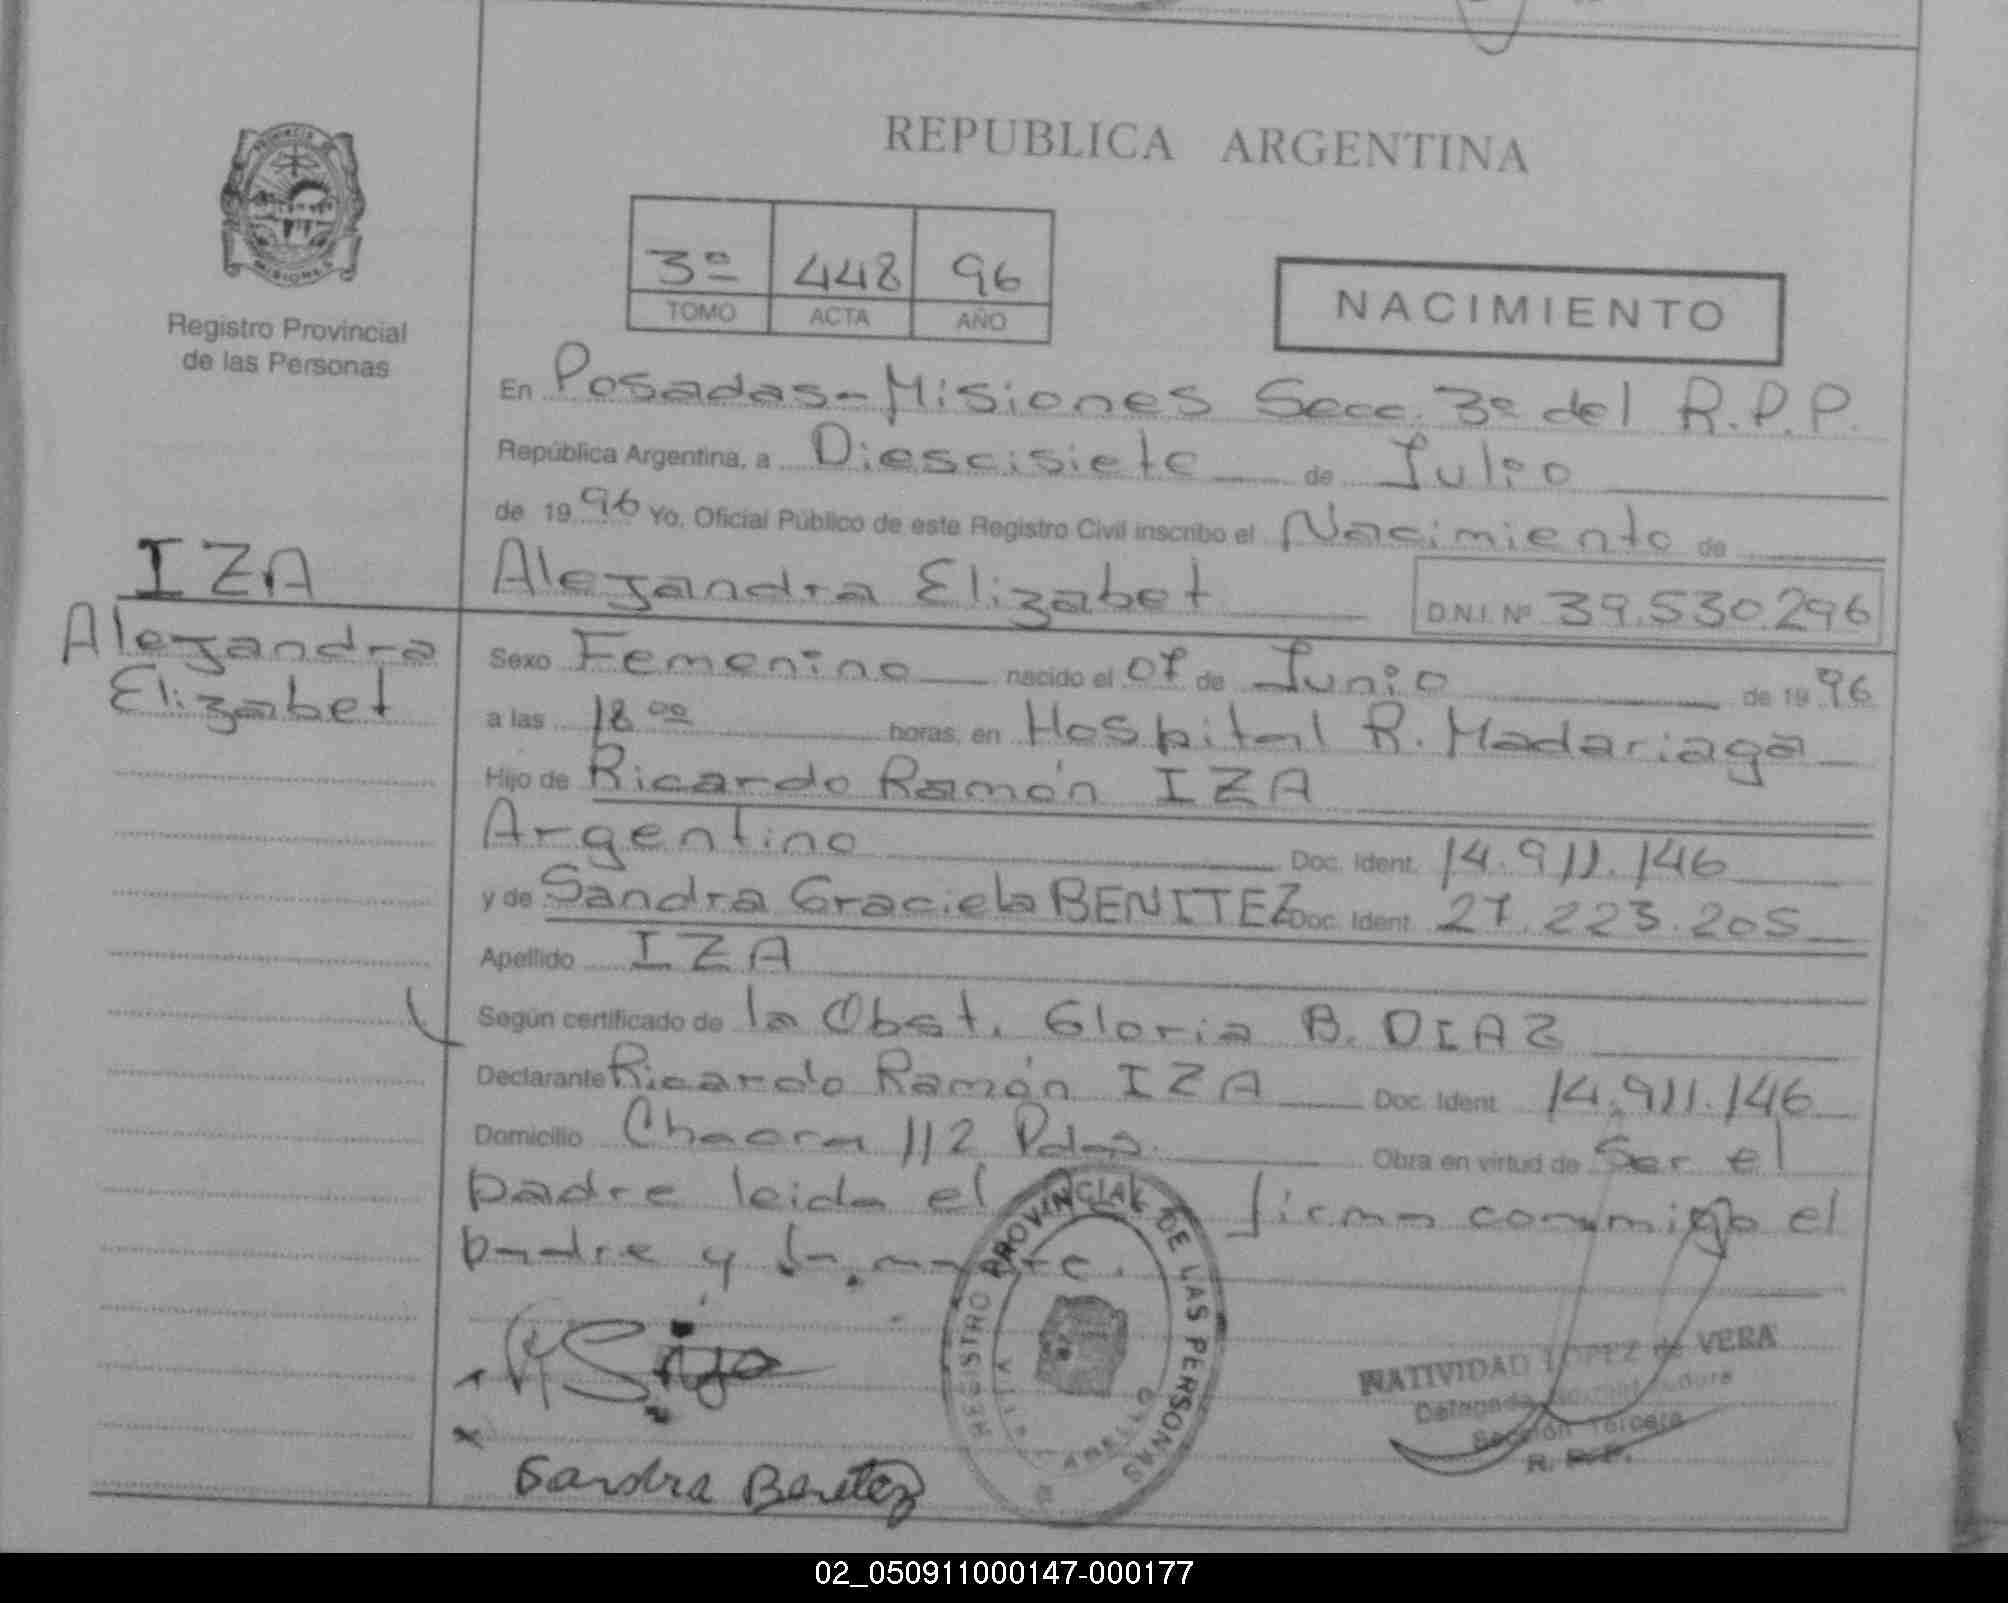 REPUBLICA ARGENTINA
MISIONES
Registro Provincial
de las Personas
3º 448 96
TOMO ACTA AÑO
NACIMIENTO
En Posadas-Misiones Secc. 3º del R.P.P.
República Argentina, a Diescisiete de Julio
de 1996 Yo, Oficial Público de este Registro Civil inscribo el Nacimiento de
IZA
Alejandra
Elizabet
Alejandra Elizabet D.N.I. Nº 39.530.296
Sexo Femenino nacido el 07 de Junio de 1996
a las 18 00 horas, en Hospital R. Madariaga
Hijo de Ricardo Ramón IZA
Argentino Doc. Ident. 14.911.146
y de Sandra Graciela BENITEZ Doc. Ident. 27.223.205
Apellido IZA
Según certificado de la Obst. Gloria B. DIAZ
Declarante Ricardo Ramón IZA Doc. Ident. 14.911.146
Domicilio Chacra 112 Pdas. Obra en virtud de Ser el
padre leida el firman conmigo el
padre y la madre.
REGISTRO PROVINCIAL DE LAS PERSONAS
NATIVIDAD LOPEZ de VERA
Delegada
Sección Tercera
R. P. P.
Sandra Benitez
02_050911000147-000177